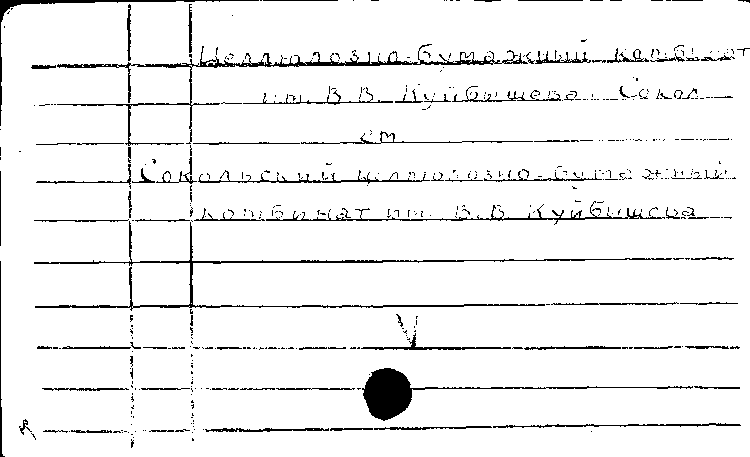 Целлюлозно-бумажный комбинат
им. В.В. Куйбышева. Сокол
см.
Сокольский целлюлозно-бумажный
комбинат им. В.В. Куйбышева